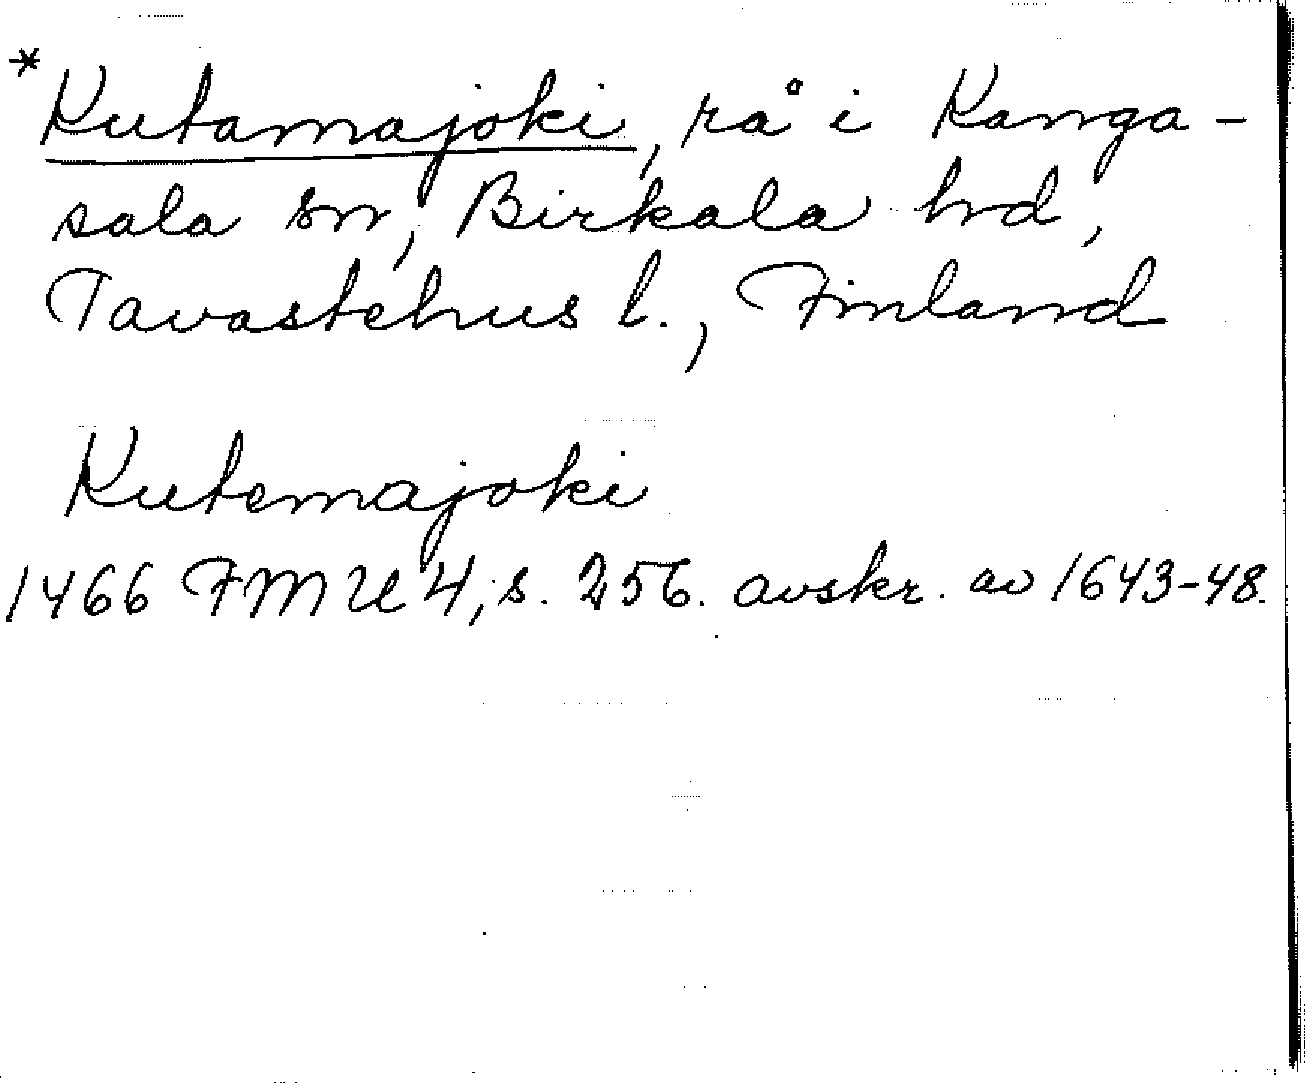 *Kutamajoki, rå i Kanga-
sala sn, Birkala hd,
Tavastehus l., Finland
Kutemajoki
1466 FMU 4, s. 256. avskr. av 1643-48.